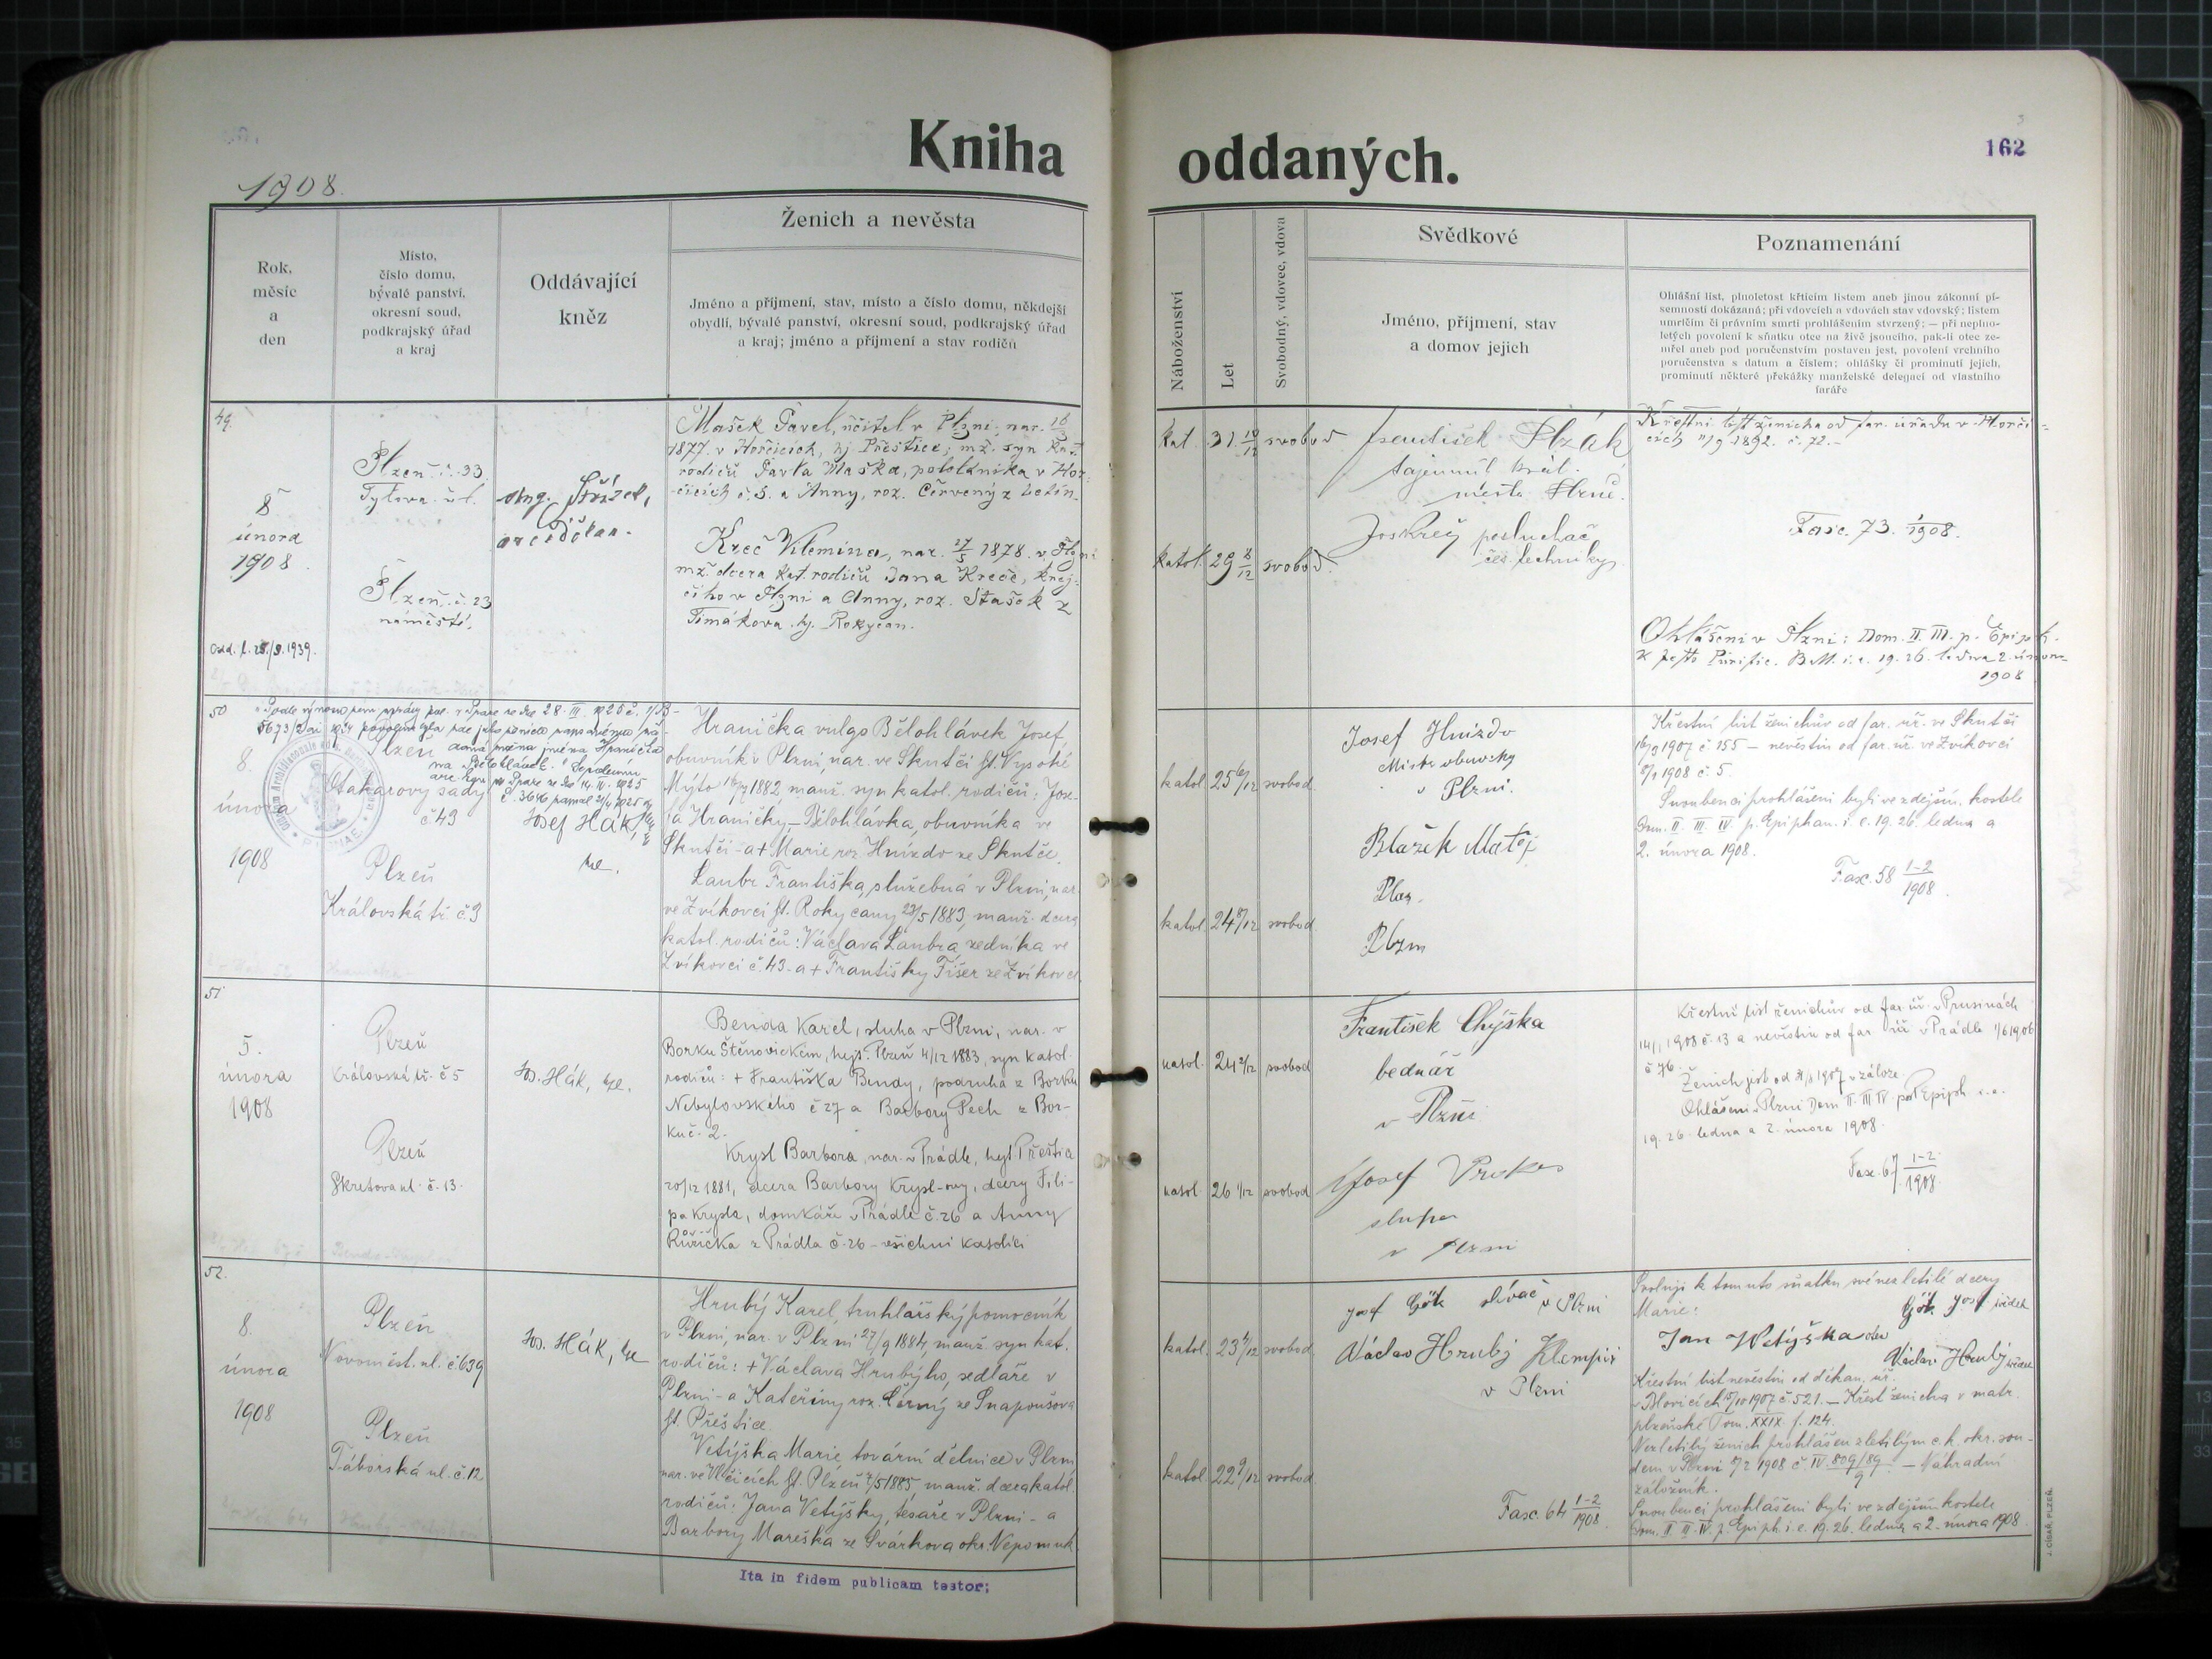 Kniha oddaných.
162
1908.
Rok,
měsíc
a
den
Místo,
číslo domu,
bývalé panství,
okresní soud,
podkrajský úřad
a kraj
Oddávající
kněz
Ženich a nevěsta
Jméno a příjmení, stav, místo a číslo domu, někdejší
obydlí, bývalé panství, okresní soud, podkrajský úřad
a kraj; jméno a příjmení a stav rodičů
Náboženství
Let
Svobodný, vdovec, vdova
Svědkové
Jméno, příjmení, stav
a domov jejich
Poznamenání
Ohlášní list, plnoletost křticím listem aneb jinou zákonní pí-
semností dokázaná; při vdovcích a vdovách stav vdovský; listem
umrlčím či právním smrti prohlášením stvrzený; — při neplno-
letých povolení k sňatku otce na živě jsoucího, pak-li otec ze-
mřel aneb pod poručenstvím postaven jest, povolení vrchního
poručenstva s datum a číslem; ohlášky či prominutí jejich,
prominutí některé překážky manželské delegací od vlastního
faráře
49.
8
února
1908.
Plzeň č. 33
Tylova ul.
Plzeň č. 23
náměstí.
arciděkan.
Mašek Pavel, učitel v Plzni, nar.
1877. v Horčicích, hj Přeštice; mž. syn kat.
rodičů Pavla Maška, pololáníka v Hor-
čicích č. 5. a Anny, roz. Červený z Letin.
Kreč Vilemina, nar. 27/5 1878. v Plzni
mž. dcera kat. rodičů Jana Kreče, krej-
čího v Plzni a Anny, roz. Stašek z
Timákova hj. Rokycan.
kat. 31 10/12 svobod
katol. 29 8/12 svobod.
František Plzák
tajemník král.
města Plzně.
Jos Kreč posluchač
čes. techniky.
Křestní list ženicha od far. úřadu v Horči-
cích 11/9 1892. č. 72.-
Fasc. 73. 1/1908.
Ohlášeni v Plzni: Dom. II. III. p. Epiph.
1908
50
8.
února
1908
Plzeň
Otakarovy sady
č 43
Plzeň
Královská tř. č. 9
Josef Hák,
Hranička vulgo Bělohlávek Josef,
obuvník v Plzni, nar. ve Skutči ht. Vysoké
Mýto 1882 manž. syn katol. rodičů: Jose-
fa Hraničky - Bělohlávka, obuvníka ve
Skutči - a + Marie roz. Hnízdo ze Skutče.
Laubr Františka, služebná v Plzni, nar.
ve Zvíkovci ht. Rokycany 23/5 1883, manž. dcera
katol. rodičů: Václava Laubra, zedníka ve
Zvíkovci č. 43 - a + Františky Fišer ze Zvíkovce
katol. 25 6/12 svobod.
katol. 24 8/12 svobod.
Josef Hnízdo
Mistr obuvnický
v Plzni.
Blažek Matěj
Plzn
Křestní list ženichův od far. úř. ve Skutči
1907 č. 155 — nevěstin od far. úř. ve Zvíkovci
1908 č. 5.
Snoubenci prohlášeni byli ve zdejším kostele
Dom. II. III. IV. p. Epiphan. i. e. 19. 26. ledna a
2. února 1908.
Fasc. 58 1-2/1908.
51
5.
února
1908
Plzeň
Královská tř. č 5
Plzeň
Skretova ul. č. 13.
Jos. Hák,
Benda Karel, sluha v Plzni, nar. v
Borku Štěnovickém, hejt. Plzeň 4/12 1883, syn katol.
rodičů: + Františka Bendy, podruha z Borku
Nebylovského č 27 a Barbory Pech z Bor-
ku č. 2.
Krysl Barbora, nar. v Prádle, hejt. Přeštice
20/12 1881, dcera Barbory Krysl-ovy, dcery Fili-
pa Krysla, domkáře v Prádle č. 26 a Anny
Růžička z Prádla č. 26 - všichni katolíci
katol. 24 2/12 svobod
katol. 26 1/12 svobod
František Chýska
bednář
v Plzni
Josef
v Plzni
Křestní list ženichův od far. úř. v Prusinách
14/1 1908 č. 13 a nevěstin od far. úř. v Prádle
č 76.
Ženich jest od 1907 v záloze.
Ohlášeni v Plzni Dom II. III. IV. post Epiph. i. e.
19. 26. ledna a 2. února 1908.
Fasc. 67 1-2/1908.
52.
8.
února
1908
Plzeň
Novoměst. ul. č. 639
Plzeň
Táborská ul. č. 12
Jos. Hák,
Hrubý Karel, truhlářský pomocník
v Plzni, nar. v Plzni 27/9 1884, manž. syn kat.
rodičů: + Václava Hrubýho, sedláře v
Plzni - a Kateřiny roz. Černý ze Snapoušova
ht. Přeštice.
Vetýška Marie, tovární dělnice v Plzni
nar. ve Vlčicích ht. Plzeň 1885, manž. dcera katol.
rodičů: Jana Vetýšky, tesaře v Plzni - a
Barbory Mareška ze Svárkova okr. Nepomuk.
katol. 23 4/12 svobod
katol. 22 9/12 svobod
Josef Gök slévač v Plzni
Václav Hrubý Klempíř
v Plzni
Fasc. 64 1-2/1908.
Svoluji k tomuto sňatku své nezletilé dcery
Marie:
Gök Josef svědek
Jan Wetýška otec
Václav Hrubý svědek
Křestní list nevěstin od děkan. úř.
v Blovicích 1907 č. 521. — Křest ženicha v matr.
plzeňské Tom. XXIX f. 124.
Nezletilý ženich prohlášen zletilým c. k. okr. sou-
dem v Plzni 1908 č. IV 809/89 — Náhradní
záložník.
Snoubenci prohlášeni byli ve zdejším kostele
Dom. II. III. IV. p. Epiph. i. e. 19. 26. ledna a 2. února 1908
Ita in fidem publicam testor;
J. CÍSAŘ, PLZEŇ.